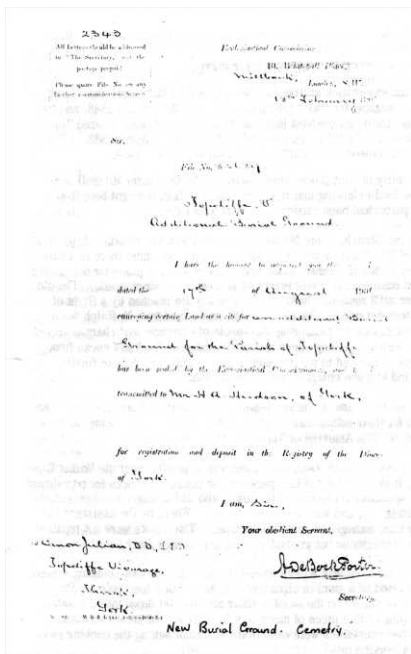 2343
All Letters should be addressed
to "The Secretary,
postage prepaid
Please quote File No. on any
further communication
Ecclesiastical Commission
10, Whitehall Place,
Millbank,
London, S.W.
February 190
Sir,
File No.
Topcliffe, V.
Additional Burial Ground.
I have the honour to acquaint you that
dated the 17th of August 190
conveying certain Land as a site for an additional Burial
Ground for the Parish of Topcliffe
has been sealed by the Ecclesiastical Commissioners, and
transmitted to Mr. H. A. Hudson, of York,
for registration and deposit in the Registry of the Diocese
of York.
I am, Sir,
Your obedient Servant,
Canon Julian, D.D.
Topcliffe Vicarage,
Thirsk,
York.
A De Bock Porter
Secretary
New Burial Ground. Cemetry.